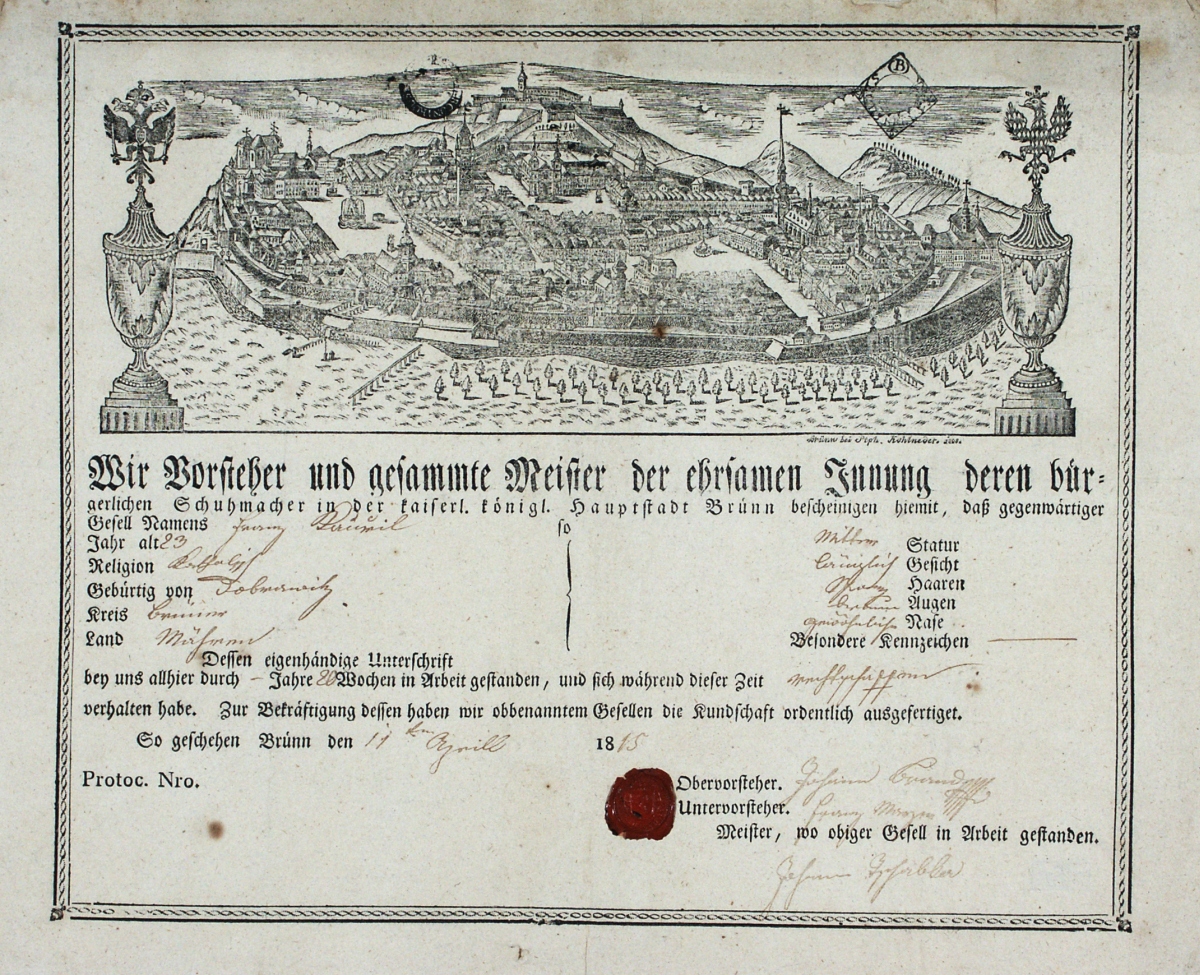 B
Brünn bei
Wir Vorsteher und gesammte Meister der ehrsamen Innung deren bür-
gerlichen Schuhmacher in der kaiserl. königl. Hauptstadt Brünn bescheinigen hiemit, daß gegenwärtiger
Gesell Namens Franz so
Jahr alt 23 Mittrer Statur
Religion Katholisch länglich Gesicht
Gebürtig von Dobrawitz Schwarz Haaren
Kreis Brünner Augen
Land Mähren gewöhnliche Nase
Besondere Kennzeichen
Dessen eigenhändige Unterschrift
bey uns allhier durch – Jahre 20 Wochen in Arbeit gestanden, und sich während dieser Zeit rechtschaffen
verhalten habe. Zur Bekräftigung dessen haben wir obbenanntem Gesellen die Kundschaft ordentlich ausgefertiget.
So geschehen Brünn den 11ten Aprill 1815
Protoc. Nro.
Obervorsteher. Johann
Untervorsteher. Franz
Meister, wo obiger Gesell in Arbeit gestanden.
Johann